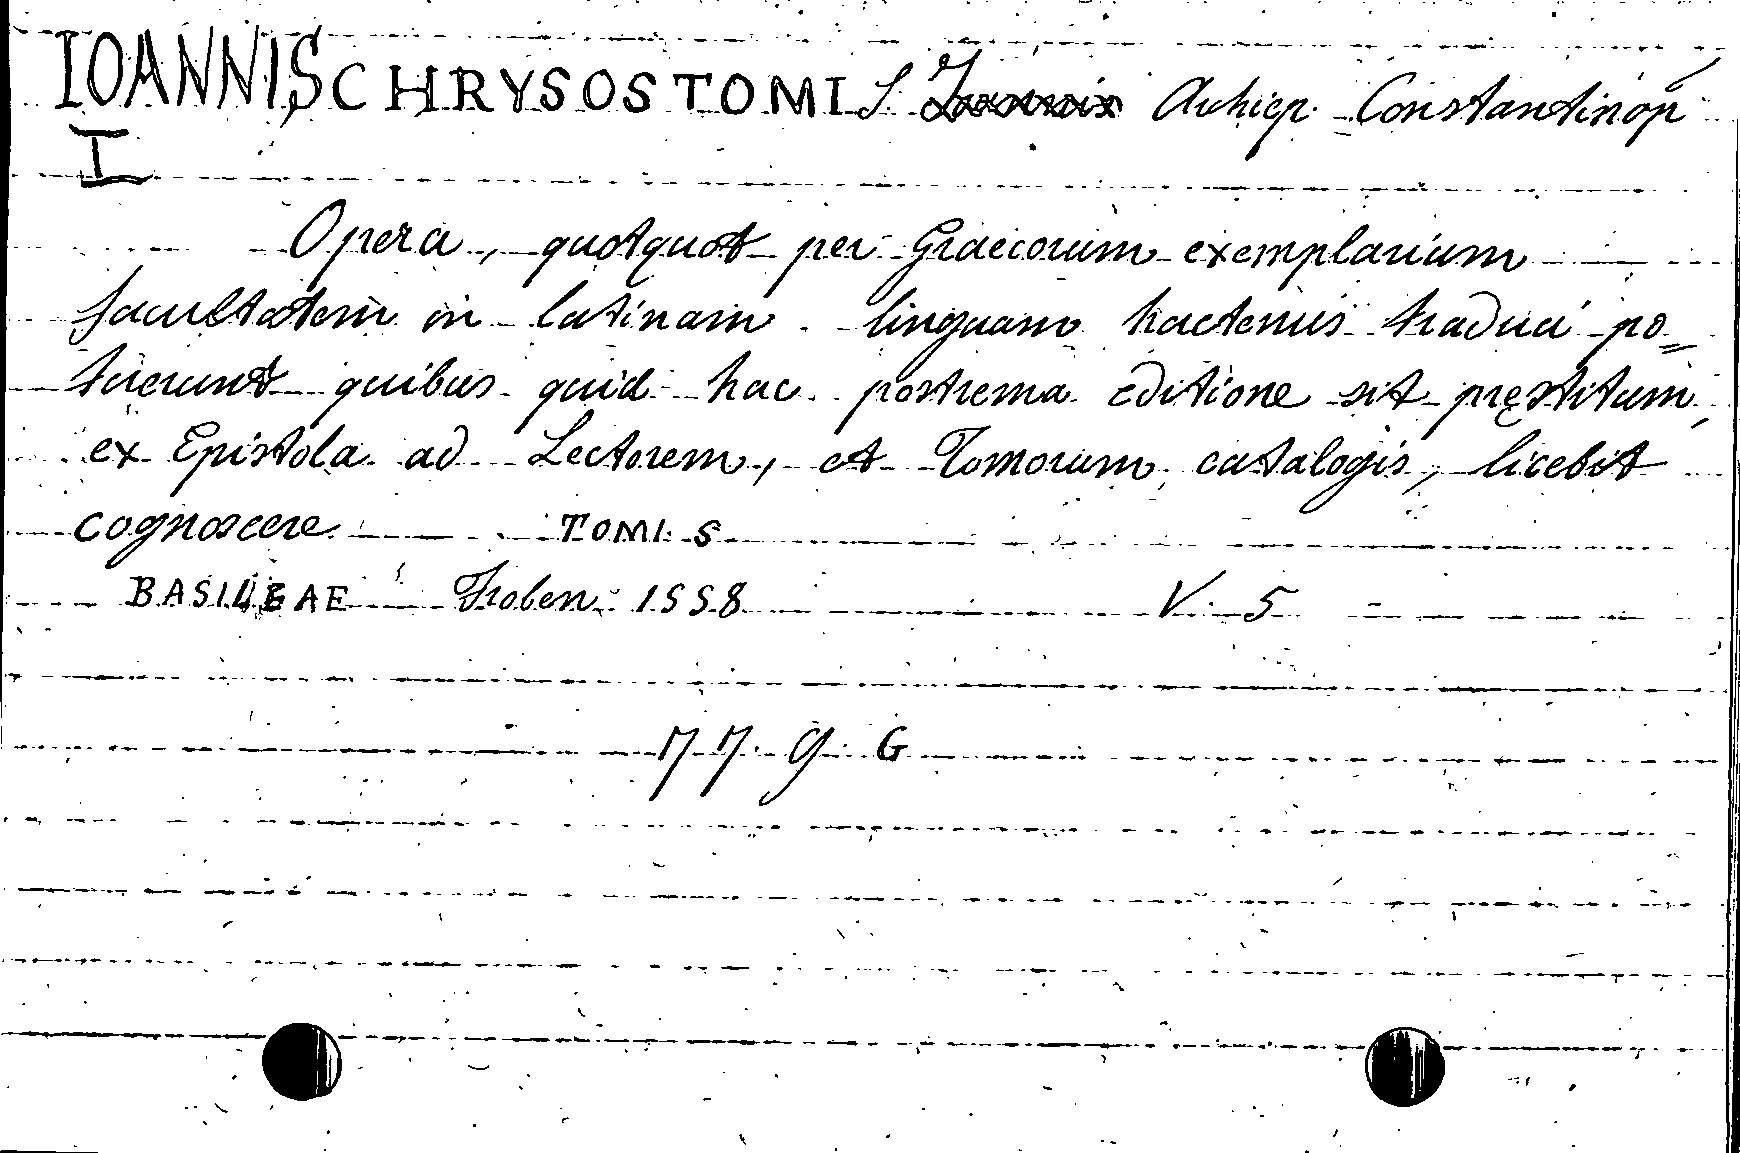 IOANNIS CHRYSOSTOMI S. Archiep. Constantinop
I
Opera, quotquot per Graecorum exemplarium
facultatem in latinam linguam hactenus traduci po=
tuerunt quibus quid hac postrema editione sit pręstitum,
ex Epistola ad Lectorem, et Tomorum catalogis, licebit
cognoscere TOMI. 5
BASILEAE Froben 1558 V. 5
77. 9. G